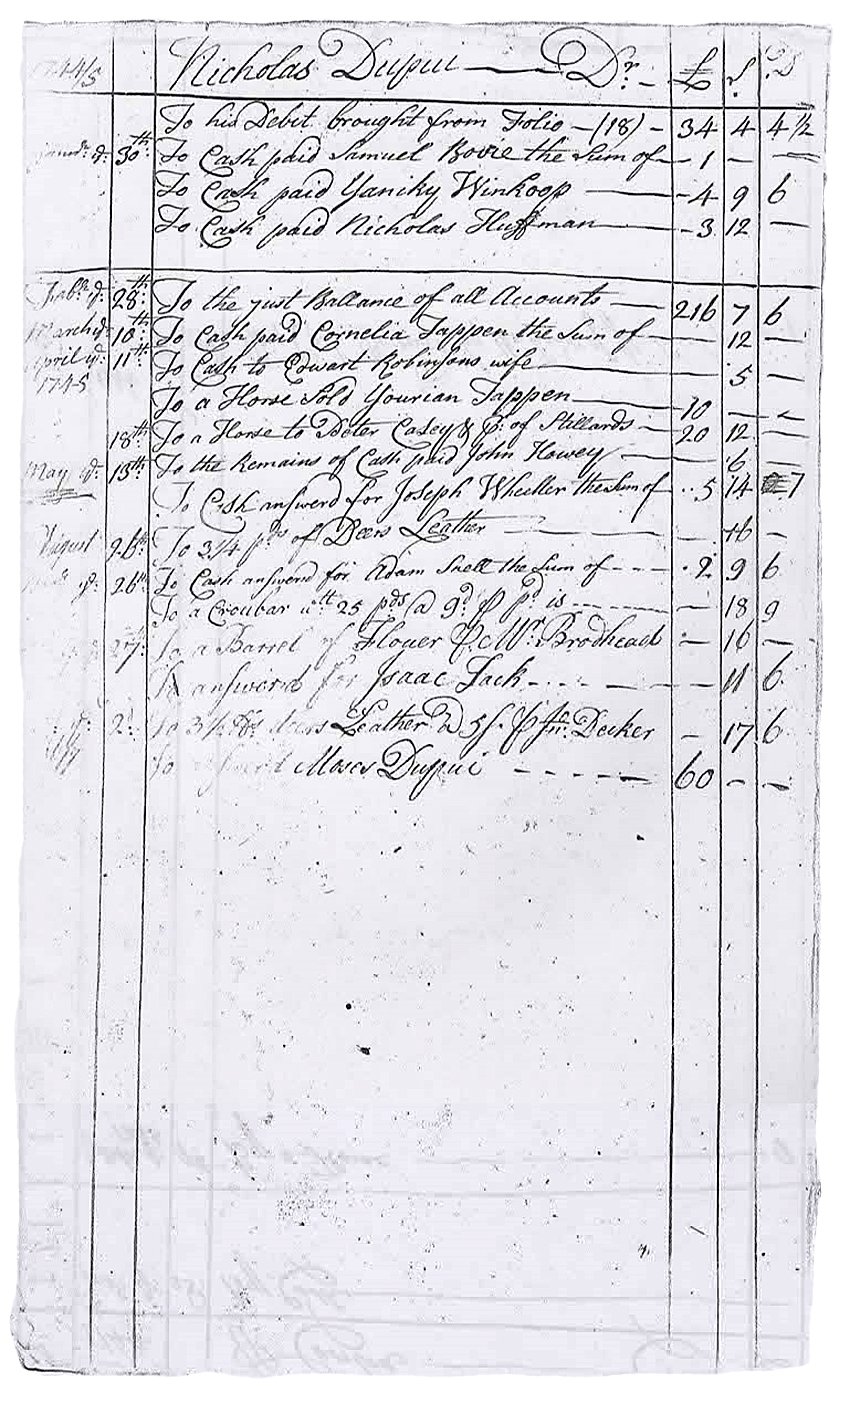 1744/5 Nicholas Dupui — Dr. — £ S. D
To his Debit brought from Folio — (18) — 34 4 4 1/2
30th To Cash paid Samuel Bovie the Sum of — 1 — —
To Cash paid Yaniky Winkoop — 4 9 6
To Cash paid Nicholas Huffman — 3 12 —
28th To the just Ballance of all Accounts — 216 7 6
March ye 10th To Cash paid Cornelia Tappen the Sum of — 12 —
April ye 11th To Cash to Edwart Robinsons wife — 5 —
1745
To a Horse Sold Yourian Tappen — 10 — —
18th To a Horse to Peter Casey & pr of Stillards — 20 12 —
May ye 15th To the Remains of Cash paid John Howey — 6 —
To Cash answerd for Joseph Wheeller the Sum of — 5 14 7
August 26th To 3 1/4 pds of Deers Leather — 16 —
ye 26th To Cash answerd for Adam Snell the Sum of - - - 2 9 6
To a Croubar wtt 25 pds @ 9d p pd is - - - — 18 9
27th To a Barrel of Flouer p Wm Brodhead — 16 —
To answerd for Isaac Tack - - - — 11 6
2d To 3 1/2 pds deers Leather @ 5s. p Jno. Decker — 17 6
To answerd Moses Dupui - - - - - 60 — —